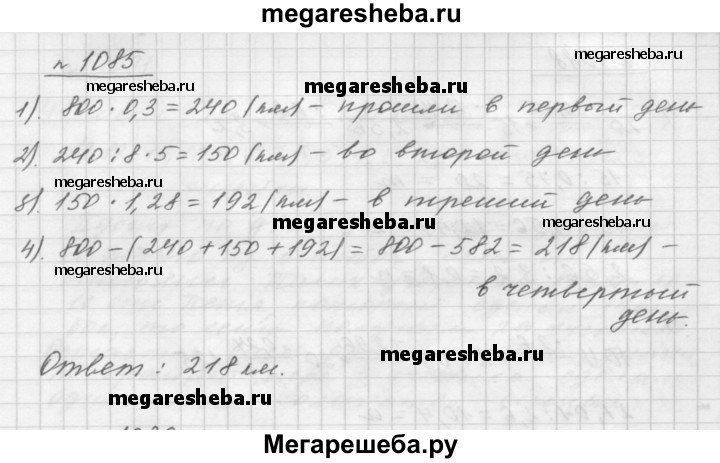 megaresheba.ru
№ 1085
megaresheba.ru
megaresheba.ru
megaresheba.ru
1). 800 · 0,3 = 240 (км) – прошли в первый день
2). 240 : 8 · 5 = 150 (км) – во второй день
megaresheba.ru
3). 150 · 1,28 = 192 (км) – в третий день
megaresheba.ru
megaresheba.ru
4). 800 – (240 + 150 + 192) = 800 – 582 = 218 (км) –
megaresheba.ru
в четвертый
день.
megaresheba.ru
Ответ: 218 км.
megaresheba.ru
Мегарешеба.ру